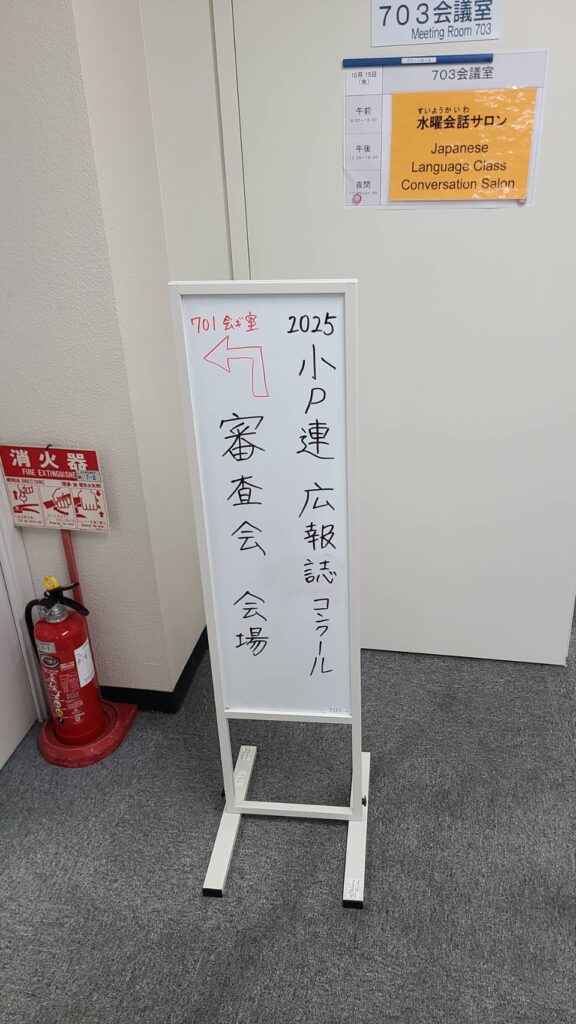 703会議室
Meeting Room 703
10月15日
(水)
703会議室
午前
午後
夜間
すいようかいわ
水曜会話サロン
Japanese
Language Class
Conversation Salon
2025
小P連 広報誌コンクール
審査会 会場
701会ギ室
701
消火器
FIRE EXTINGUISHER
DIRECTIONS